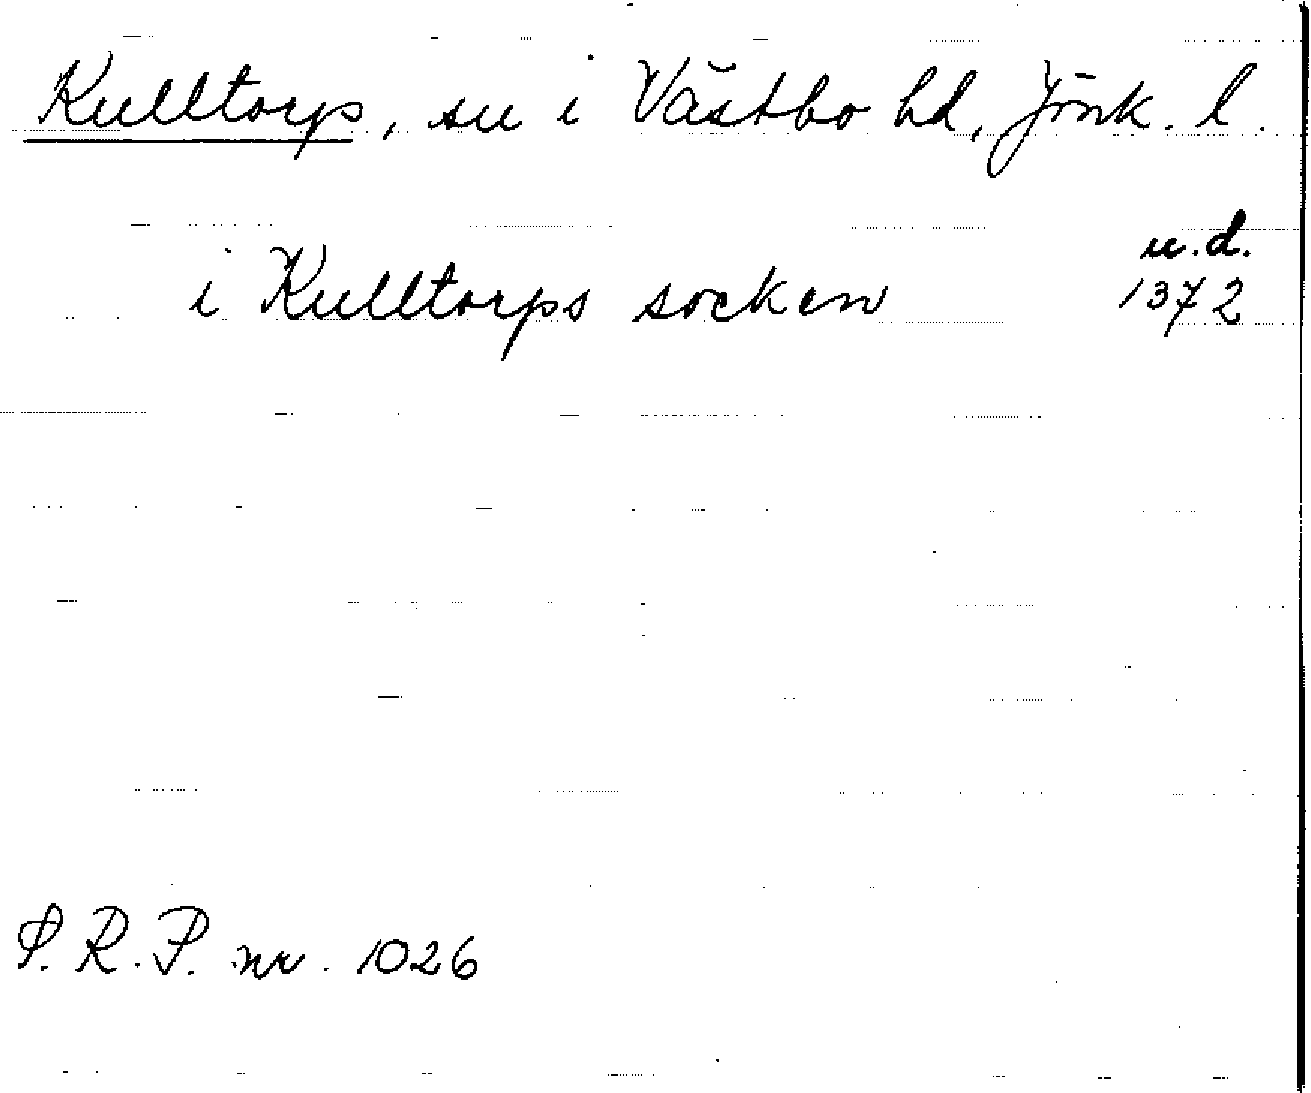 Kulltorps, sn i Västbo hd, Jönk. l.
u.d.
i Kulltorps socken 1372
S.R.P. nr. 1026